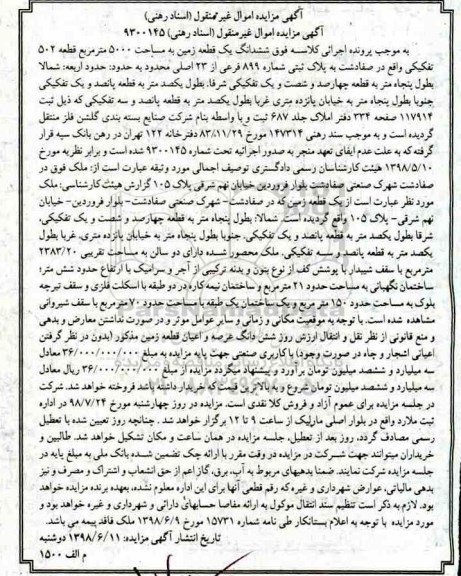 آگهی مزایده اموال غیرمنقول (اسناد رهنی)
آگهی مزایده اموال غیرمنقول (اسناد رهنی) ۹۳۰۰۱۴۵
به موجب پرونده اجرائی کلاسه فوق ششدانگ یک قطعه زمین به مساحت ۵۰۰۰ مترمربع قطعه ۵۰۲
تفکیکی واقع در صفادشت به پلاک ثبتی شماره ۸۹۹ فرعی از ۲۳ اصلی محدود به حدود: حدود اربعه: شمالا
بطول پنجاه متر به قطعه چهارصد و شصت و یک تفکیکی شرقا، بطول یکصد متر به قطعه پانصد و یک تفکیکی
جنوبا بطول پنجاه متر به خیابان پانزده متری غربا بطول یکصد متر به قطعه پانصد و سه تفکیکی که ذیل ثبت
۱۱۷۹۱۴ صفحه ۳۳۴ دفتر املاک جلد ۶۸۷ ثبت و یا واسطه بنام شرکت صنایع بسته بندی گلشن فلز منتقل
گردیده است و به موجب سند رهنی ۱۴۷۳۱۴ مورخ ۸۳/۱۱/۲۹ دفترخانه ۱۲۲ تهران در رهن بانک سپه قرار
گرفته که به علت عدم ایفای تعهد منجر به صدور اجرائیه تحت شماره ۹۳۰۰۱۴۵ شده است و برابر نظریه مورخ
۱۳۹۸/۵/۱۰ هیئت کارشناسان رسمی دادگستری توصیف اجمالی مورد وثیقه عبارت است از: ملک فوق در
صفادشت شهرک صنعتی صفادشت بلوار فروردین خیابان نهم شرقی پلاک ۱۰۵ گزارش هیئت کارشناسی: ملک
مورد نظر عبارت است از یک قطعه زمین که در صفادشت- شهرک صنعتی صفادشت- بلوار فروردین- خیابان
نهم شرقی- پلاک ۱۰۵ واقع گردیده است. شمالا: بطول پنجاه متر به قطعه چهارصد و شصت و یک تفکیکی،
شرقا بطول یکصد متر به قطعه پانصد و یک تفکیکی، جنوبا بطول پنجاه متر به خیابان پانزده متری، غربا بطول
یکصد متر به قطعه پانصد و سه تفکیکی. ملک محصور شده دارای دو سالن به مساحت تقریبی ۲۳۸۳/۲۰
مترمربع با سقف شیبدار با پوشش کف از نوع بتون و بدنه ترکیبی از آجر و سرامیک با ارتفاع حدود شش متر؛
ساختمان نگهبانی به مساحت حدود ۲۱ مترمربع و ساختمان نیمه کاره در دو طبقه با اسکلت فلزی و سقف تیرچه
بلوک به مساحت حدود ۱۵۰ متر مربع و یک ساختمان یک طبقه با مساحت حدود ۷۰ مترمربع با سقف شیروانی
مشاهده شده است. با توجه به موقعیت مکانی و زمانی و سایر عوامل موثر و در صورت نداشتن معارض و بدهی
و منع قانونی از نظر نقل و انتقال ارزش روز شش دانگ عرصه و اعیان قطعه زمین مذکور (بدون در نظر گرفتن
اعیانی انشجار و چاه در صورت وجود) با کاربری صنعتی جهت پایه مزایده به مبلغ ۳۶/۰۰۰/۰۰۰/۰۰۰ معادل
سه میلیارد و ششصد میلیون تومان برآورد و پیشنهاد میگردد مزایده از مبلغ ۳۶/۰۰۰/۰۰۰/۰۰۰ ریال معادل
سه میلیارد و ششصد میلیون تومان شروع و به بالاترین قیمت که خریدار داشته باشد فروخته خواهد شد. شرکت
در جلسه مزایده برای عموم آزاد و فروش کلا نقدی است. مزایده در روز چهارشنبه مورخ ۹۸/۷/۲۴ در اداره
ثبت ملارد واقع در بلوار اصلی مارلیک از ساعت ۹ تا ۱۲ برگزار خواهد شد. چنانچه روز تعیین شده با تعطیل
رسمی مصادف گردد، روز بعد از تعطیل، جلسه مزایده در همان ساعت و مکان تشکیل خواهد شد. طالبین و
خریداران میتوانند جهت شرکت در مزایده در وقت مقرر با ارائه چک تضمین شده بانک ملی به مبلغ پایه در
جلسه مزایده شرکت نمایند. ضمنا بدهیهای مربوط به آب، برق، گاز اعم از حق انشعاب و اشتراک و مصرف و نیز
بدهی مالیاتی، عوارض شهرداری و غیره که رقم قطعی آنها برای این اداره معلوم نشده، بعهده برنده مزایده خواهد
بود. لازم به ذکر است تنظیم سند انتقال موکول به ارائه مفاصا حسابهای دارائی و شهرداری و غیره خواهد بود و
مورد مزایده با توجه به اعلام بستانکار طی نامه شماره ۱۵۷۳۱ مورخ ۱۳۹۸/۶/۹ ملک فاقد بیمه می باشد.
تاریخ انتشار آگهی مزایده: ۱۳۹۸/۶/۱۱ دوشنبه
م الف ۱۵۰۰